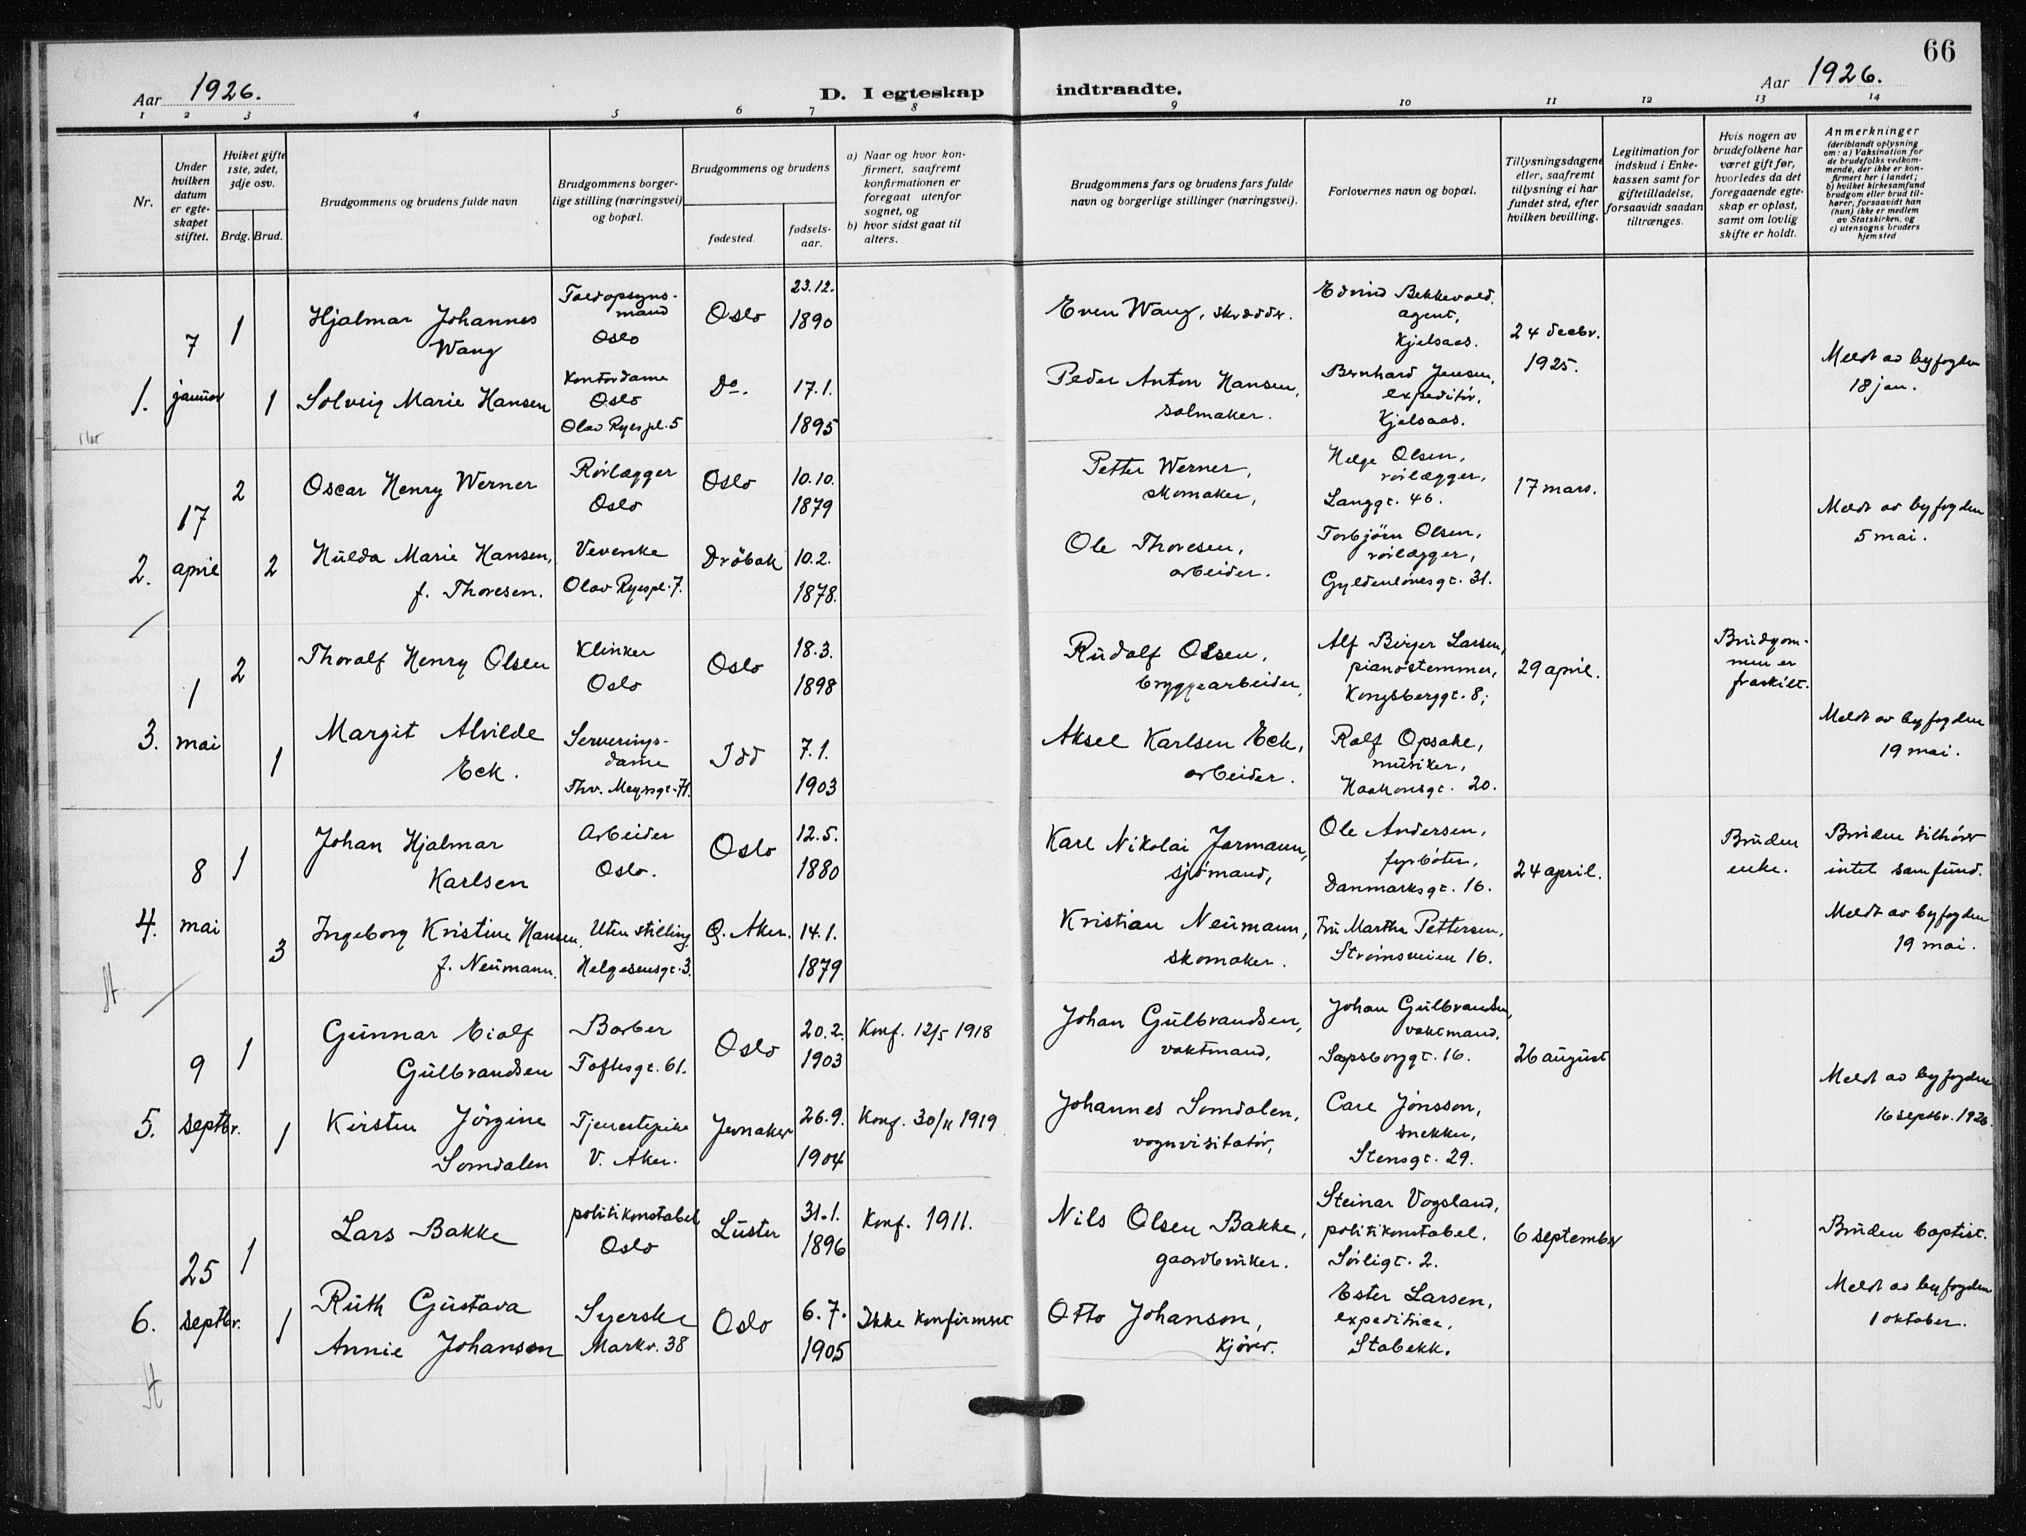 66
Aar 1926.
D. I egteskap indtraadte.
Aar 1926.
1 2 3 4 5 6 7 8 9 10 11 12 13 14
Nr.
Under hvilken datum er egteskapet stiftet.
Hviket gifte 1ste, 2det, 3dje osv.
Brdg. Brud.
Brudgommens og brudens fulde navn
Brudgommens borgerlige stilling (næringsvei) og bopæl.
Brudgommens og brudens
fødested.
fødselsaar.
a) Naar og hvor konfirmert, saafremt konfirmationen er foregaat utenfor sognet, og
b) hvor sidst gaat til alters.
Brudgommens fars og brudens fars fulde navn og borgerlige stillinger (næringsvei).
Forlovernes navn og bopæl.
Tillysningsdagene eller, saafremt tillysning ei har fundet sted, efter hvilken bevilling.
Legitimation for indskud i Enkekassen samt for giftetilladelse, forsaavidt saadan tiltrænges.
Hvis nogen av brudefolkene har været gift før, hvorledes da det foregaaende egteskap er opløst, samt om lovlig skifte er holdt.
Anmerkninger
(deriblandt oplysning om: a) Vaksination for de brudefolks vedkommende, der ikke er konfirmert her i landet; b) hvilket kirkesamfund brudgom eller brud tilhører, forsaavidt han (hun) ikke er medlem av Statskirken, og c) utensogns bruders hjemsted
1. 7 januar
1 Hjalmar Johannes Wang
Toldopsynsmand Oslo
Oslo
23.12. 1890
Even Wang, skrædder.
Edvind Bekkevold, agent, Kjelsaas.
24 decbr. 1925.
1 Solveig Marie Hansen
Kontordame Oslo Olav Ryespl. 5
Do.
17.1. 1895
Peder Anton Hansen, salmaker.
Bernhard Jensen, expeditør, Kjelsaas.
Meldt av byfogden 18 jan.
2. 17 april
2 Oscar Henry Werner
Rørlægger Oslo
Oslo
10.10. 1879
Petter Werner, skomaker,
Helge Olsen, rørlægger, Langgt. 46.
17 mars.
2 Hulda Marie Hansen, f. Thoresen.
Veverske Olav Ryespl. 7.
Drøbak
10.2. 1878.
Ole Thoresen, arbeider.
Torbjørn Olsen, rørlægger, Gyldenløvesgt. 31.
Meldt av byfogden 5 mai.
3. 1 mai
2 Thoralf Henry Olsen
Klinker Oslo
Oslo
18.3. 1898
Rudolf Olsen, bryggearbeider,
Alf Birger Larsen, pianostemmer, Kongsberggt. 8;
29 april.
Brudgommen er fraskilt.
1 Margit Alvilde Eck.
Serveringsdame Thv. Meyersgt. 71.
Idd
7.1. 1903
Aksel Karlsen Eck, arbeider.
Rolf Opsahl, musiker, Haakonsgt. 20.
Meldt av byfogden 19 mai.
4. 8 mai
1 Johan Hjalmar Karlsen
Arbeider Oslo.
Oslo
12.5. 1880
Karl Nikolai Jormann, sjømand,
Ole Andersen, fyrbøter, Danmarksgt. 16.
24 april.
Bruden enke.
Bruden tilhører intet samfund.
3 Ingeborg Kristine Hansen, f. Neumann.
Uten stilling Helgesensgt. 3.
Ø. Aker.
14.1. 1879
Kristian Neumann, skomaker.
Fru Martha Pettersen, Strømsveien 16.
Meldt av byfogden 19 mai.
5. 9 septbr.
1 Gunnar Eialf Gulbrandsen
Barber Toftesgt. 61.
Oslo
20.2. 1903
Konf. 12/5 1918
Johan Gulbrandsen, vaktmand,
Johan Gulbrandsen, vaktmand, Sarpsborggt. 16.
26 august
1 Kirsten Jörgine Somdalen
Tjenestepike V. Aker.
Jevnaker
26.9. 1904
Konf. 30/11 1919
Johannes Somdalen, vognvisitatör,
Carl Jonsson, snekker, Stensgt. 29.
Meldt av byfogden 16 septbr. 1926.
6. 25 septbr.
1 Lars Bakke
politikonstabel Oslo
Luster
31.1. 1896
Konf. 1911.
Nils Olsen Bakke, gaardbruker.
Steinar Vogsland, politikonstabel. Sørligt. 2.
6 september
Bruden baptist.
1 Ruth Gustava Annie Johanson
Syerske Markv. 38
Oslo
6.7. 1905
Ikke konfirmert
Otto Johanson, kjører.
Ester Larsen, expeditrice, Stabekk.
Meldt av byfogden 1 oktober.